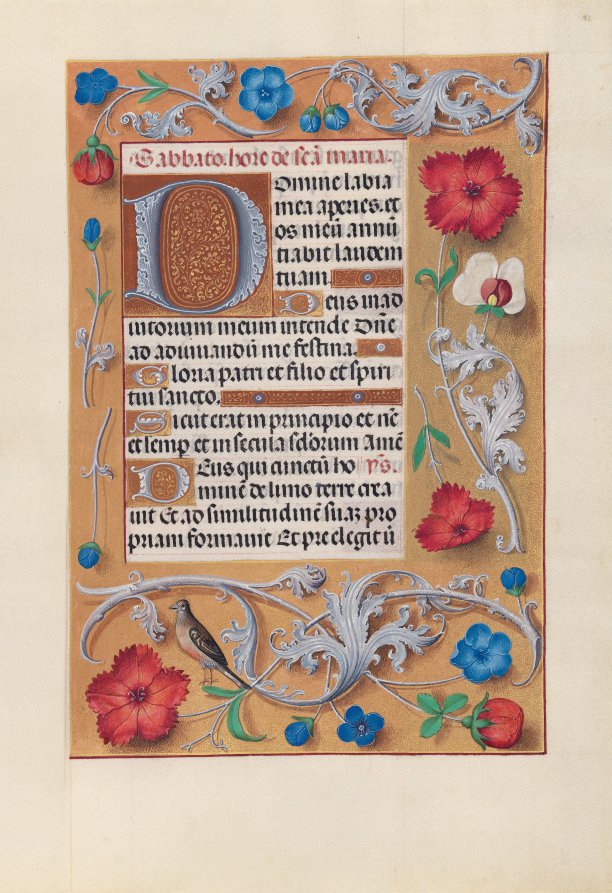 Sabbato. hore de sc̄ā maria.
Domine labia
mea aperies. et
os meū annū
tiabit laudem
tuam.
Deus in ad
iutorium meum intende Dn̄e
ad adiuuandū me festina.
Gloria patri et filio et spiri
tui sancto.
Sicut erat in principio et nc̄
et semp et in secula sclorum Amē
Deus qui cunctū ho yp̄s.
minē de limo terre crea
uit Et ad similitudinē suaꝫ pro
priam formauit Et pre elegit ū